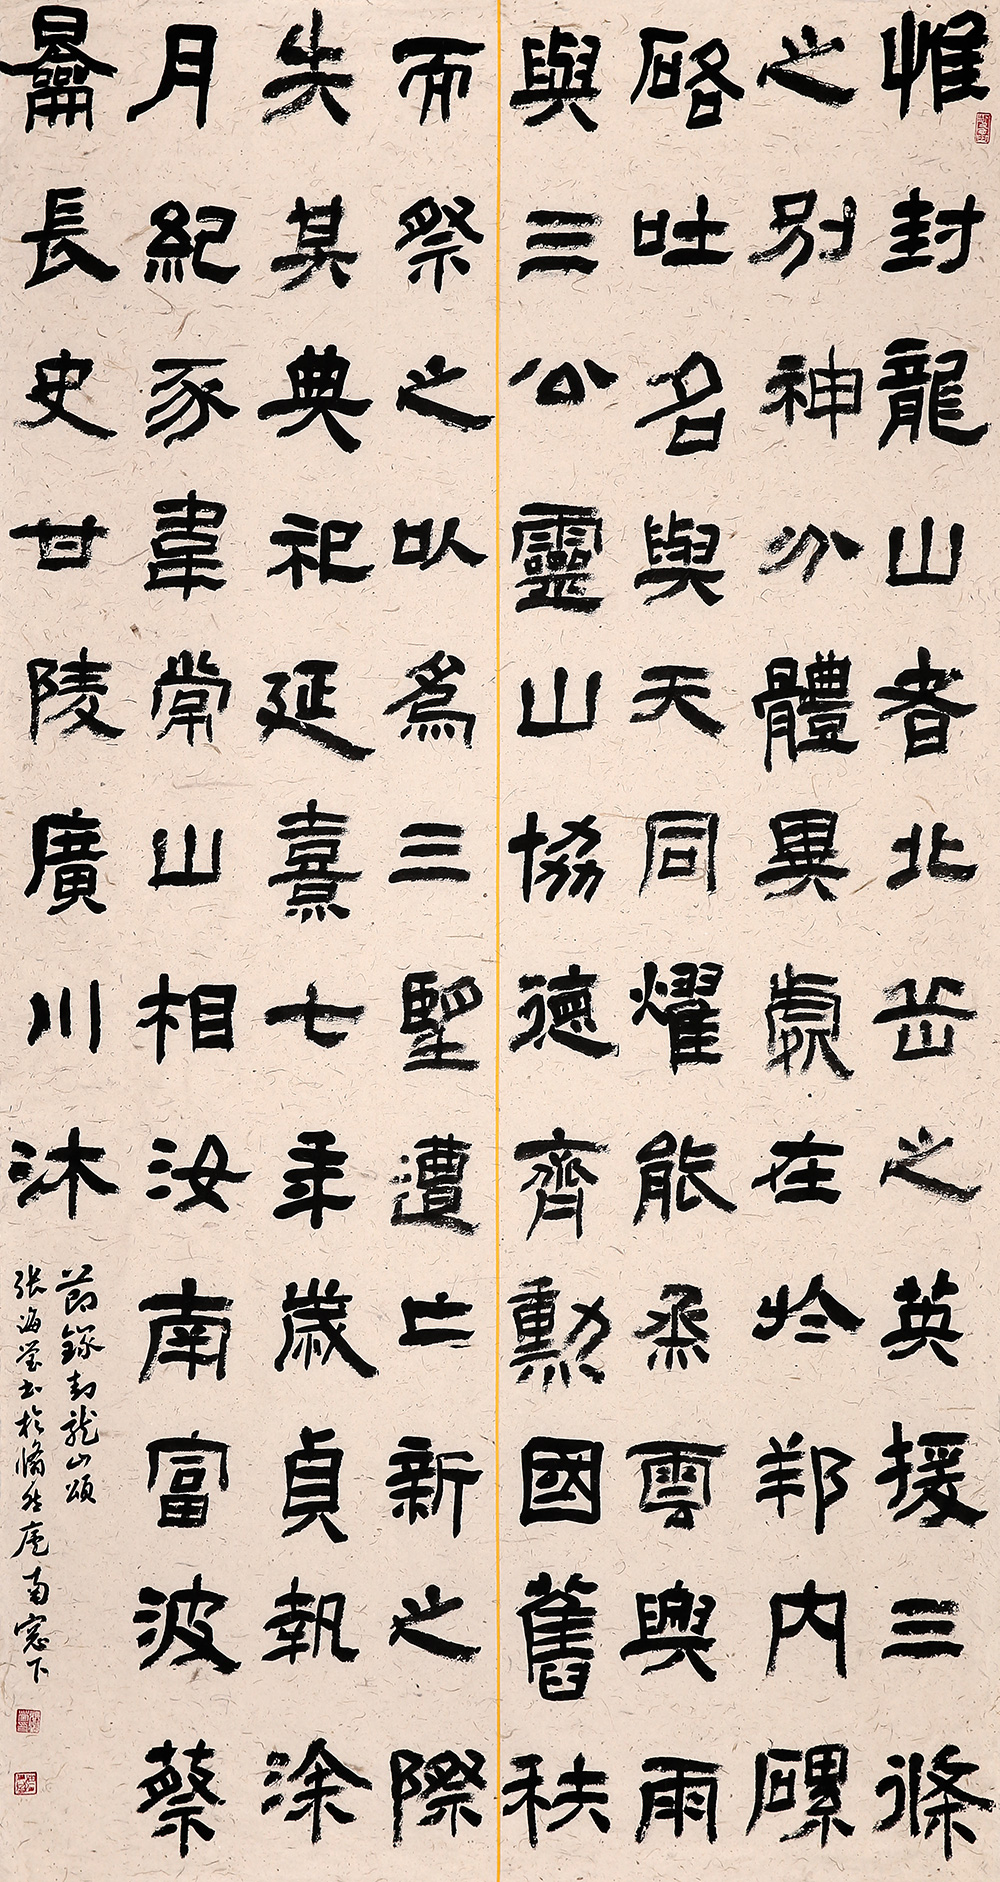 惟封龍山者北岳之英援三條
之別神分體異處在於邦内磥
硌吐名與天同燿能烝雲興雨
與三公靈山協德齊勳國舊秩
而祭之以為三聖遭亡新之際
失其典祀延熹七年歲貞執涂
月紀豕韋常山相汝南富波蔡
䵻長史甘陵廣川沐
節錄封龍山頌
张海莹书於脩然庵南窓下